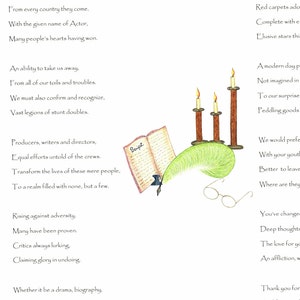 From every country they come.
With the given name of Actor,
Many people's hearts having won.
An ability to take us away.
From all of our toils and troubles.
We must also confirm and recognize,
Vast legions of stunt doubles.
Producers, writers and directors,
Equal efforts untold of the crews.
Transform the lives of these were people,
To a realm filled with none, but a few.
Rising against adversity,
Many have been proven.
Critics always lurking,
Claiming glory in undoing.
Whether it be a drama, biography,
Red carpets ado
Complete with s
Elusive stars th
A modern day p
Not imagined in
To our surprise
Peddling goods
We would prefe
With your yout
Better to leave
Where are they
You've change
Deep thought
The love for yo
An affliction, w
Thank you for